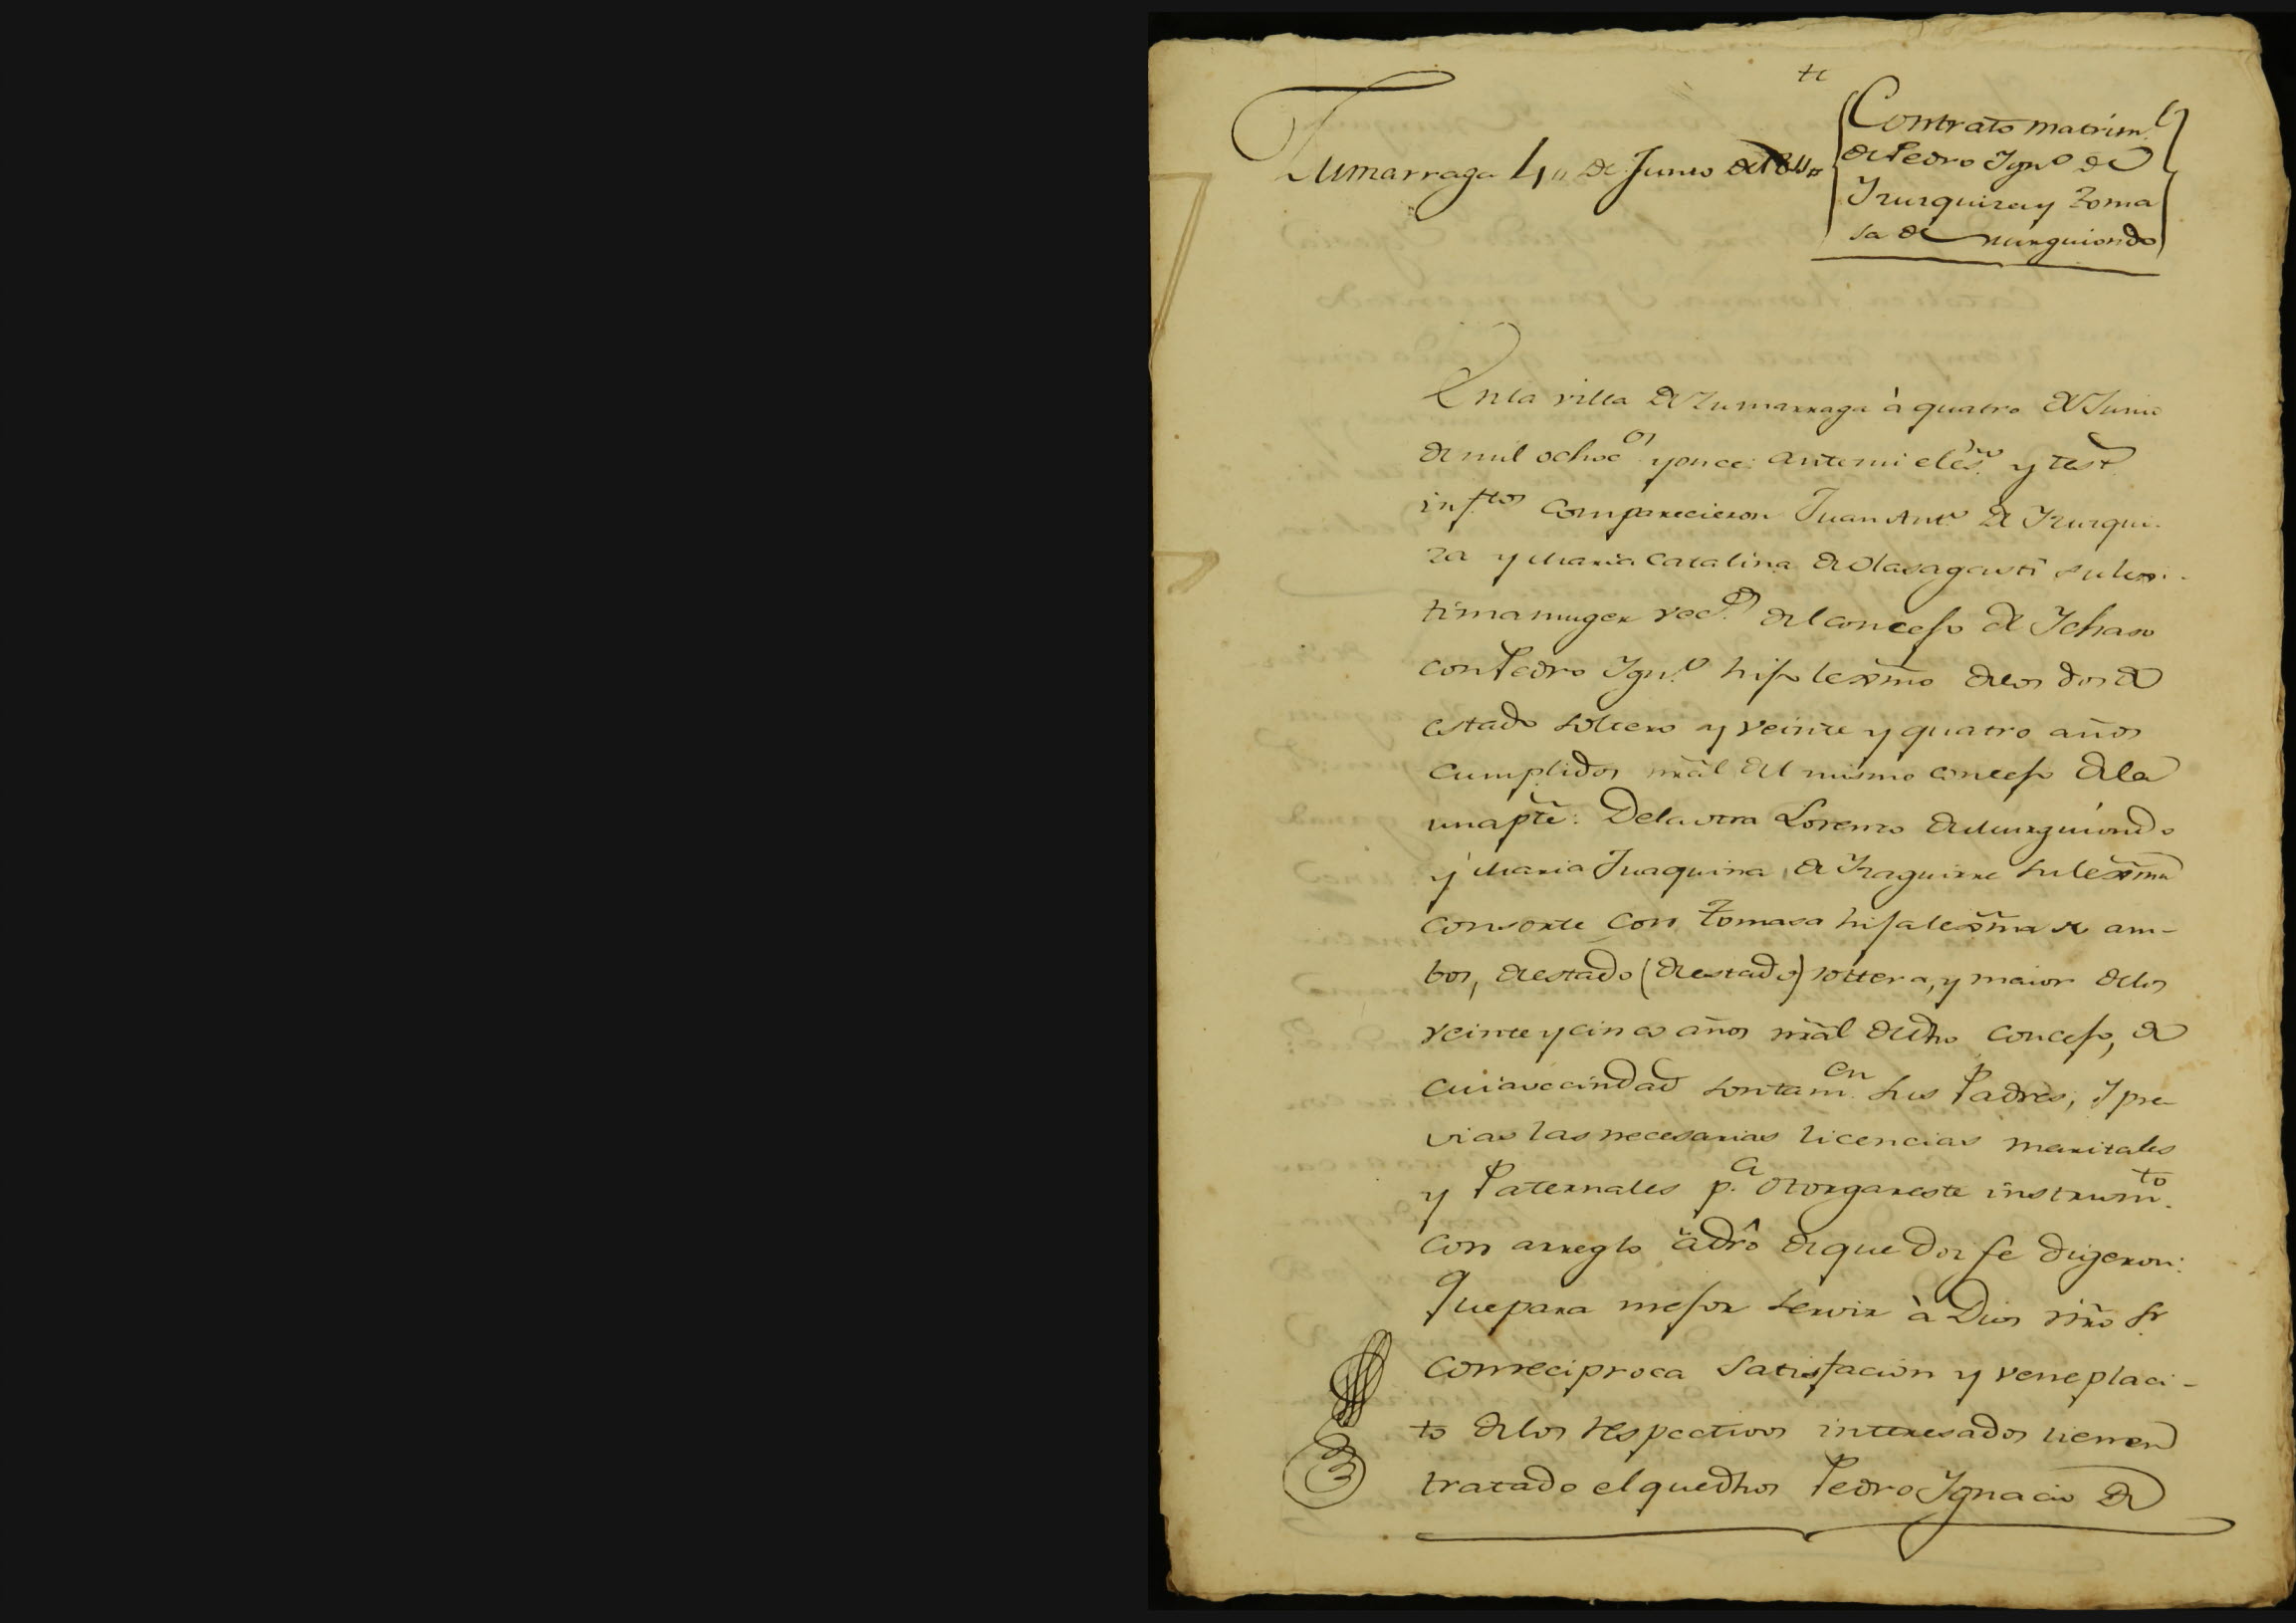 Zumarraga 4,, de Junio de 1811
Contrato matrim.l
de Pedro Ygn.o de
Yzurquiza y Toma
sa de Murguiondo
En la villa de Zumarraga à quatro de Junio
de mil ochoc.os y once: ante mi el es.no y test.
inf.tos comparecieron Juan Ant.o de Yzurqui-
za y Maria Catalina de Olasagasti su lexi-
tima muger vec.os del concejo de Ychaso
con Pedro Ygn.o hijo lexmo de los dos de
estado soltero y veinte y quatro años
cumplidos nral del mismo concejo de la
una pte: De la otra Lorenzo de Murguiondo
y Maria Juaquina de Yzaguirre su lexma
consorte con Tomasa hija lexma de am-
bos, de estado (de estado) soltera, y maior de los
veinte y cinco años nral de dho concejo, de
cuia vecindad son tam.en sus Padres; Y pre-
vias las necesarias licencias maritales
y Paternales p.a otorgar este instrum.to
con arreglo à dro de que doi fe digeron:
Que para mejor servir à Dios nro Sr
con reciproca satisfacion y veneplaci-
to de los respectivos interesados tienen
tratado el que dhos Pedro Ygnacio de